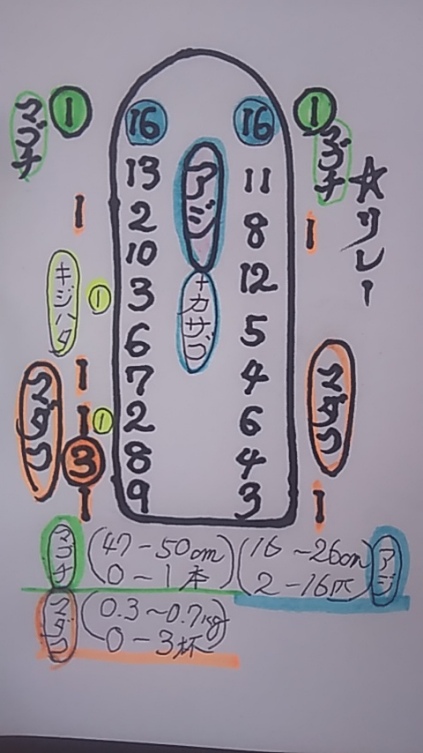 ☆リレー
マゴチ 1 16 16 1 マゴチ
13 アジ 11
1 2 8 1
10 +カサゴ 12
キジハタ 1 3 5
6 4
1 7 6
マダコ 1 1 2 4 マダコ
3 8 3
1 9 1
マゴチ (47-50cm 0-1本) (16~26cm 2-16匹) アジ
マダコ (0.3~0.7kg 0-3杯)